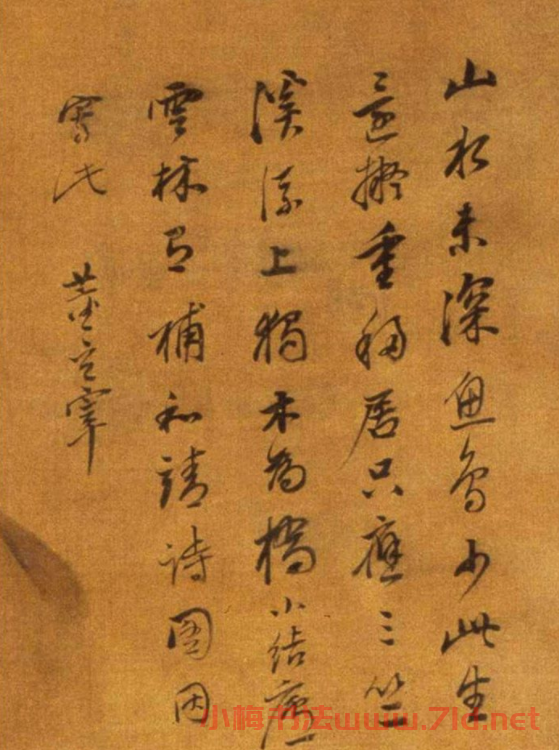 山水未深魚鳥少此生
還擬重移居只應三竺
溪流上獨木為橋小結廬
雲林有補和靖詩圖因
寫此 董玄宰
小梅书法www.7ld.net